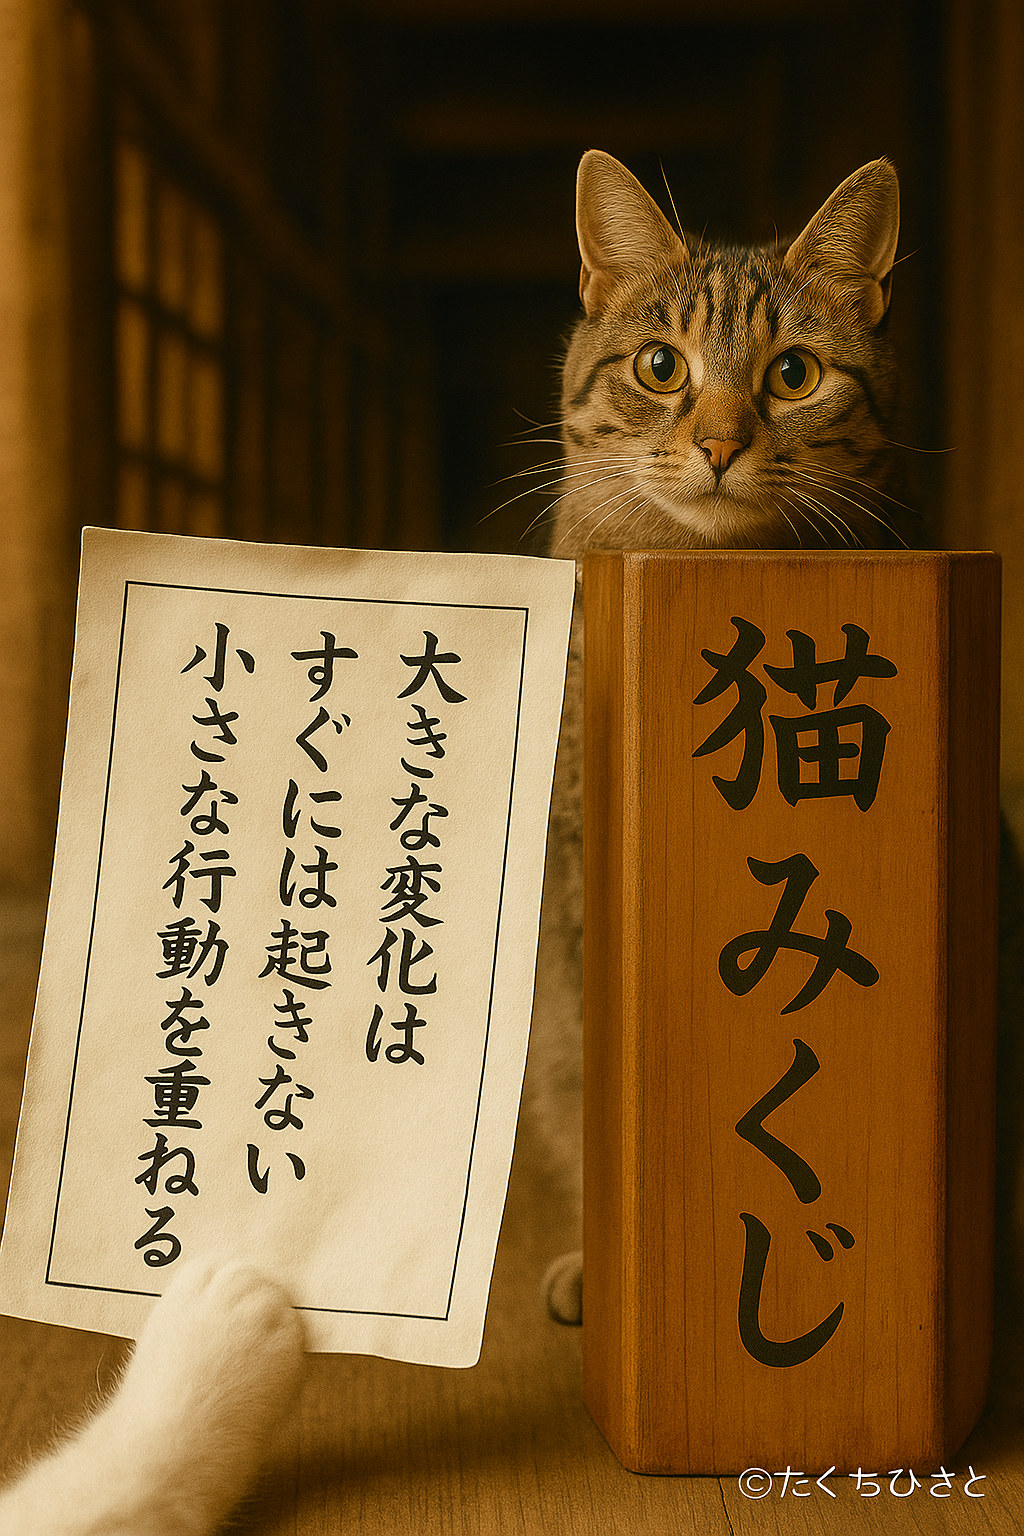 大きな変化は
すぐには起きない
小さな行動を重ねる
猫みくじ
©たくちひさと